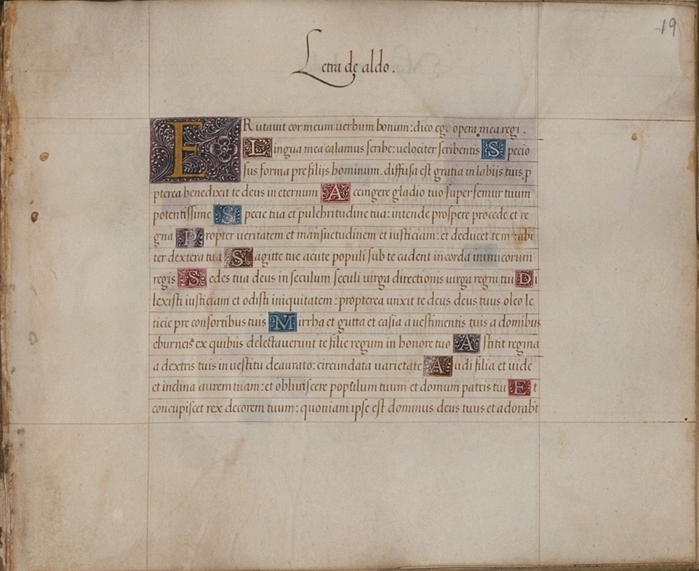 19
Letra de aldo.
ERutauit cor meum uerbum bonum: dico ego opera mea regi.
Lingua mea calamus scribe: uelociter scribentis Specio
sus forma pre filijs hominum. diffusa est gratia in labijs tuis, p
pterea benedixit te deus in eternum Accingere gladio tuo super femur tuum
potentissime Specie tua et pulchritudine tua: intende prospere procede et re
gna Propter ueritatem et mansuetudinem et iusticiam: et deducet te mirabi
ter dextera tua Sagitte tue acute populi sub te cadent in corda inimicorum
regis Sedes tua deus in seculum seculi uirga directionis uirga regni tui Di
lexisti iusticiam et odisti iniquitatem: propterea unxit te deus deus tuus oleo le
ticie pre consortibus tuis Mirrha et gutta et casia a uestimentis tuis a domibus
eburneis ex quibus delectauerunt te filie regum in honore tuo Astitit regina
a dextris tuis in uestitu deaurato: circundata uarietate Audi filia et uide
et inclina aurem tuam: et obliuiscere populum tuum et domum patris tui Et
concupiscet rex decorem tuum: quoniam ipse est dominus deus tuus et adorabt